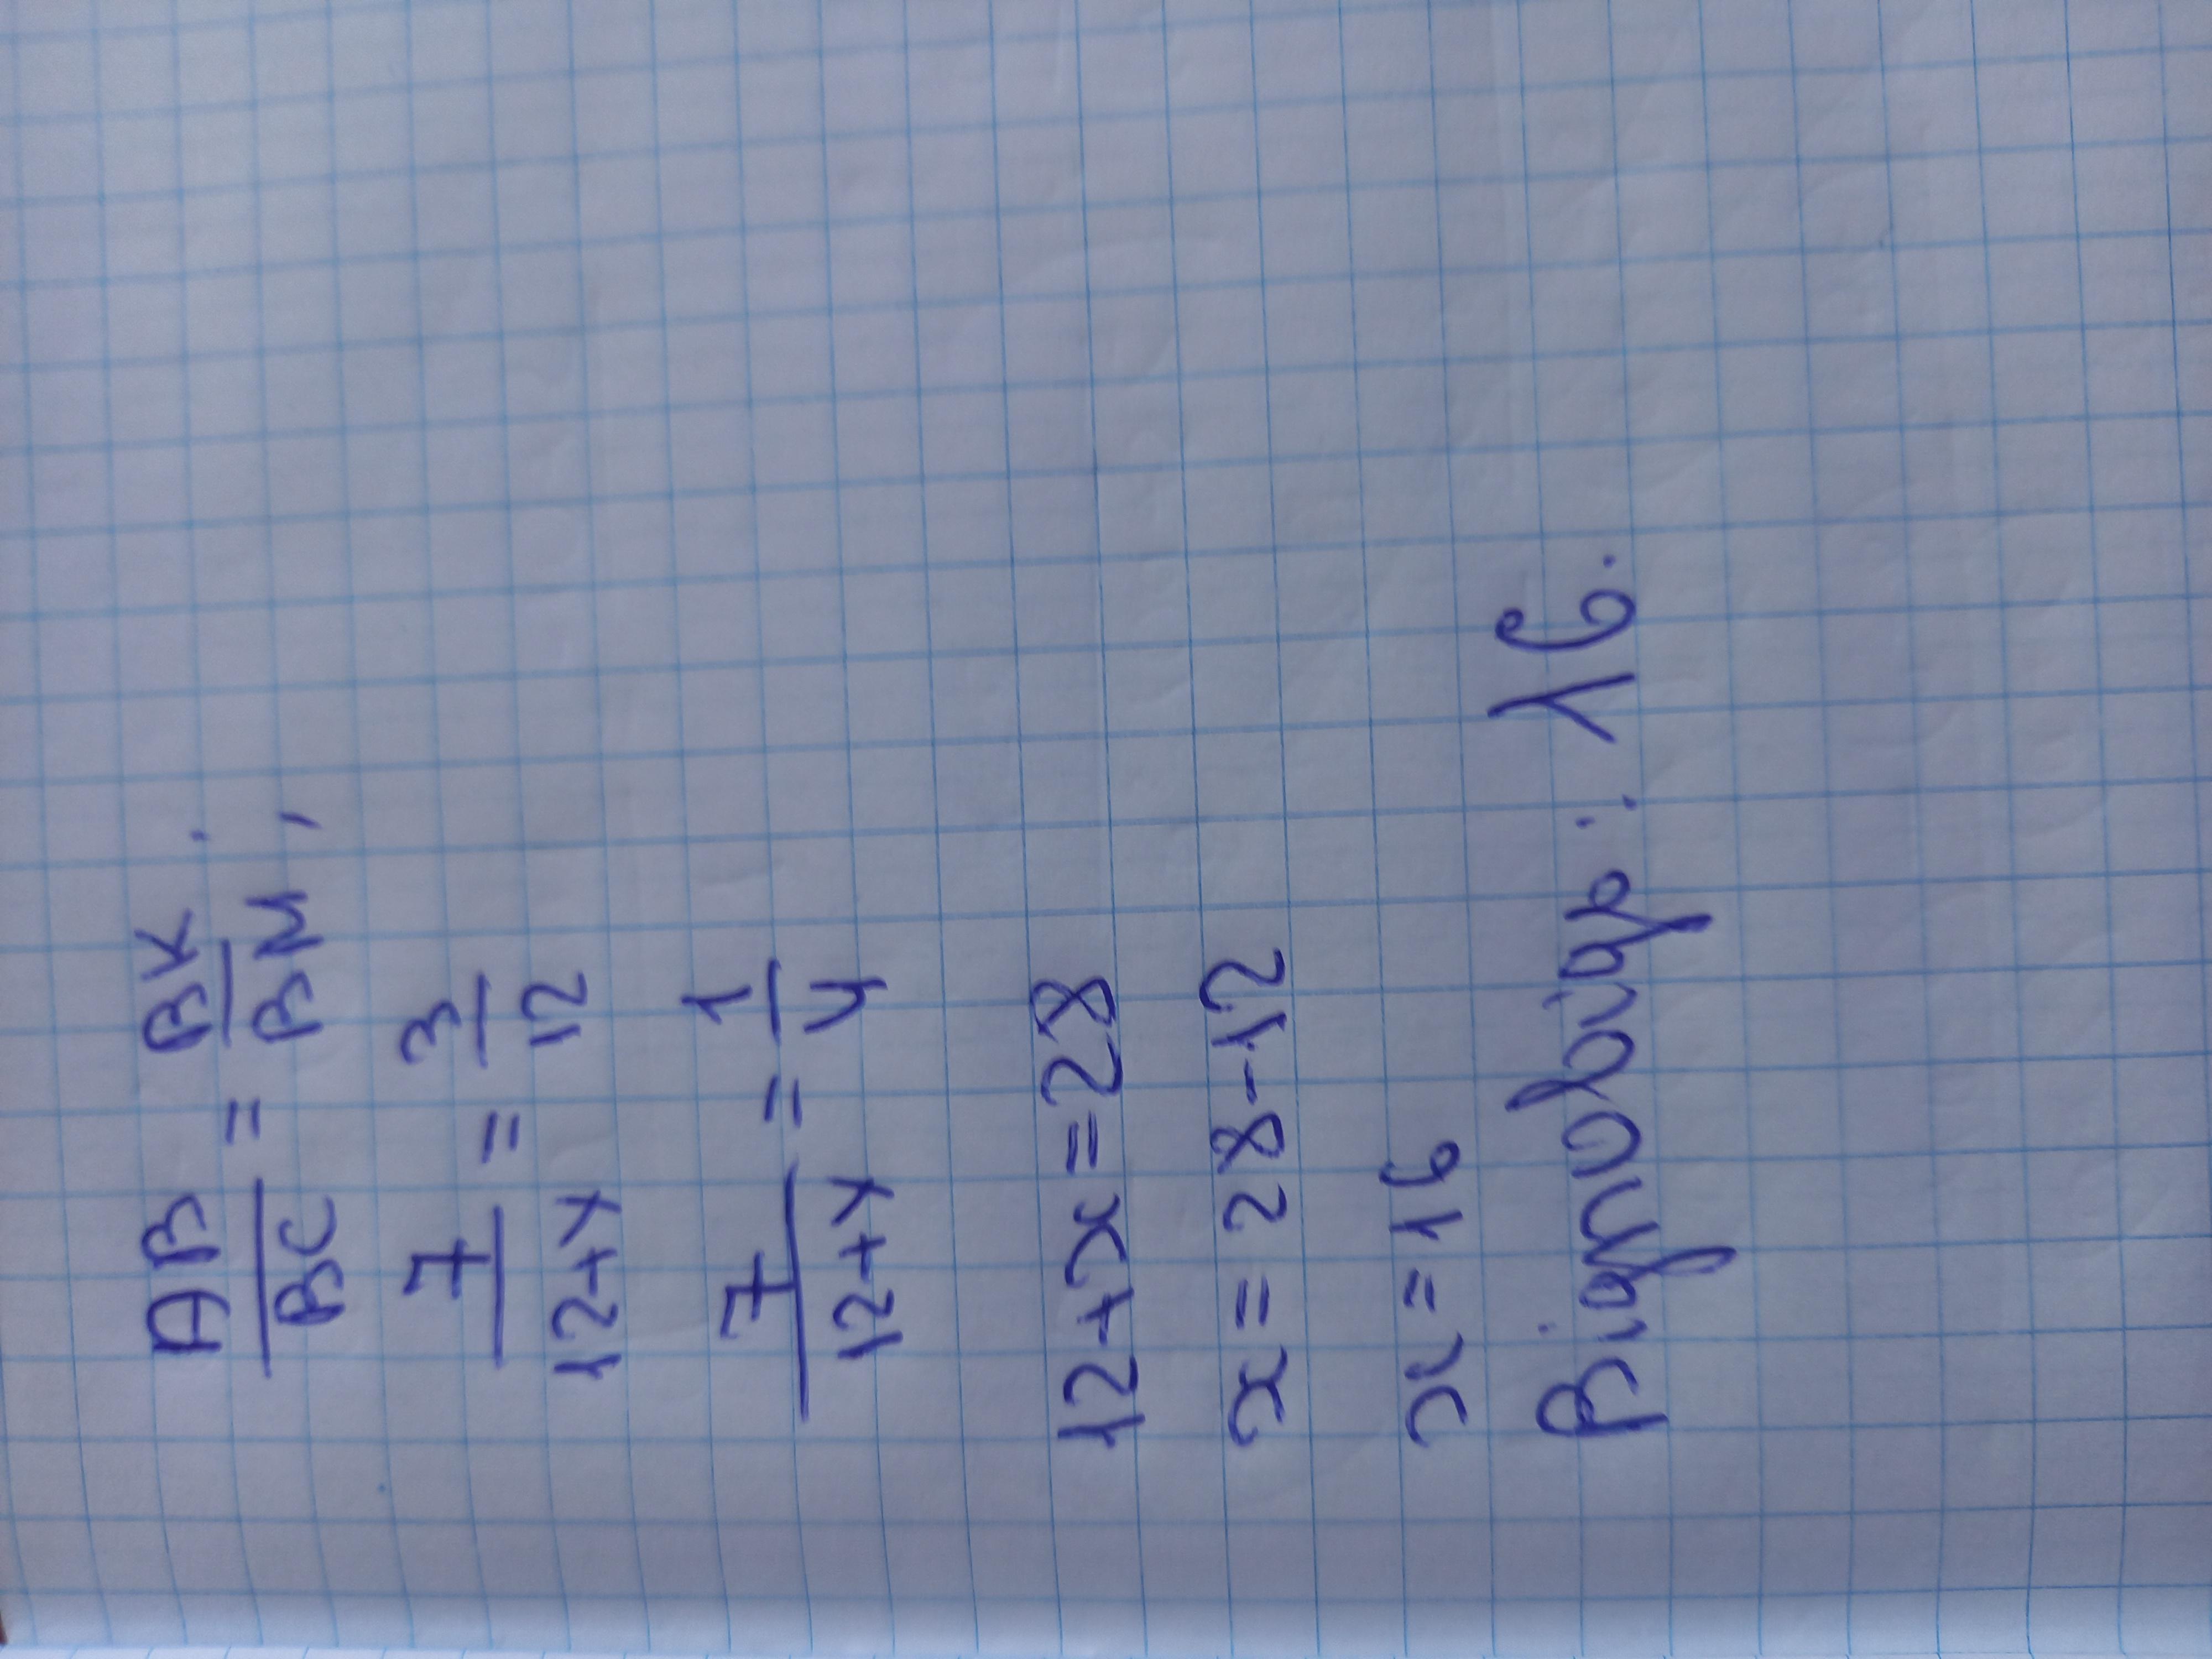 AB/BC = BK/BM ;
7/12+x = 3/12
7/12+x = 1/4
12+x=28
x=28-12
x=16
Відповідь: 16.